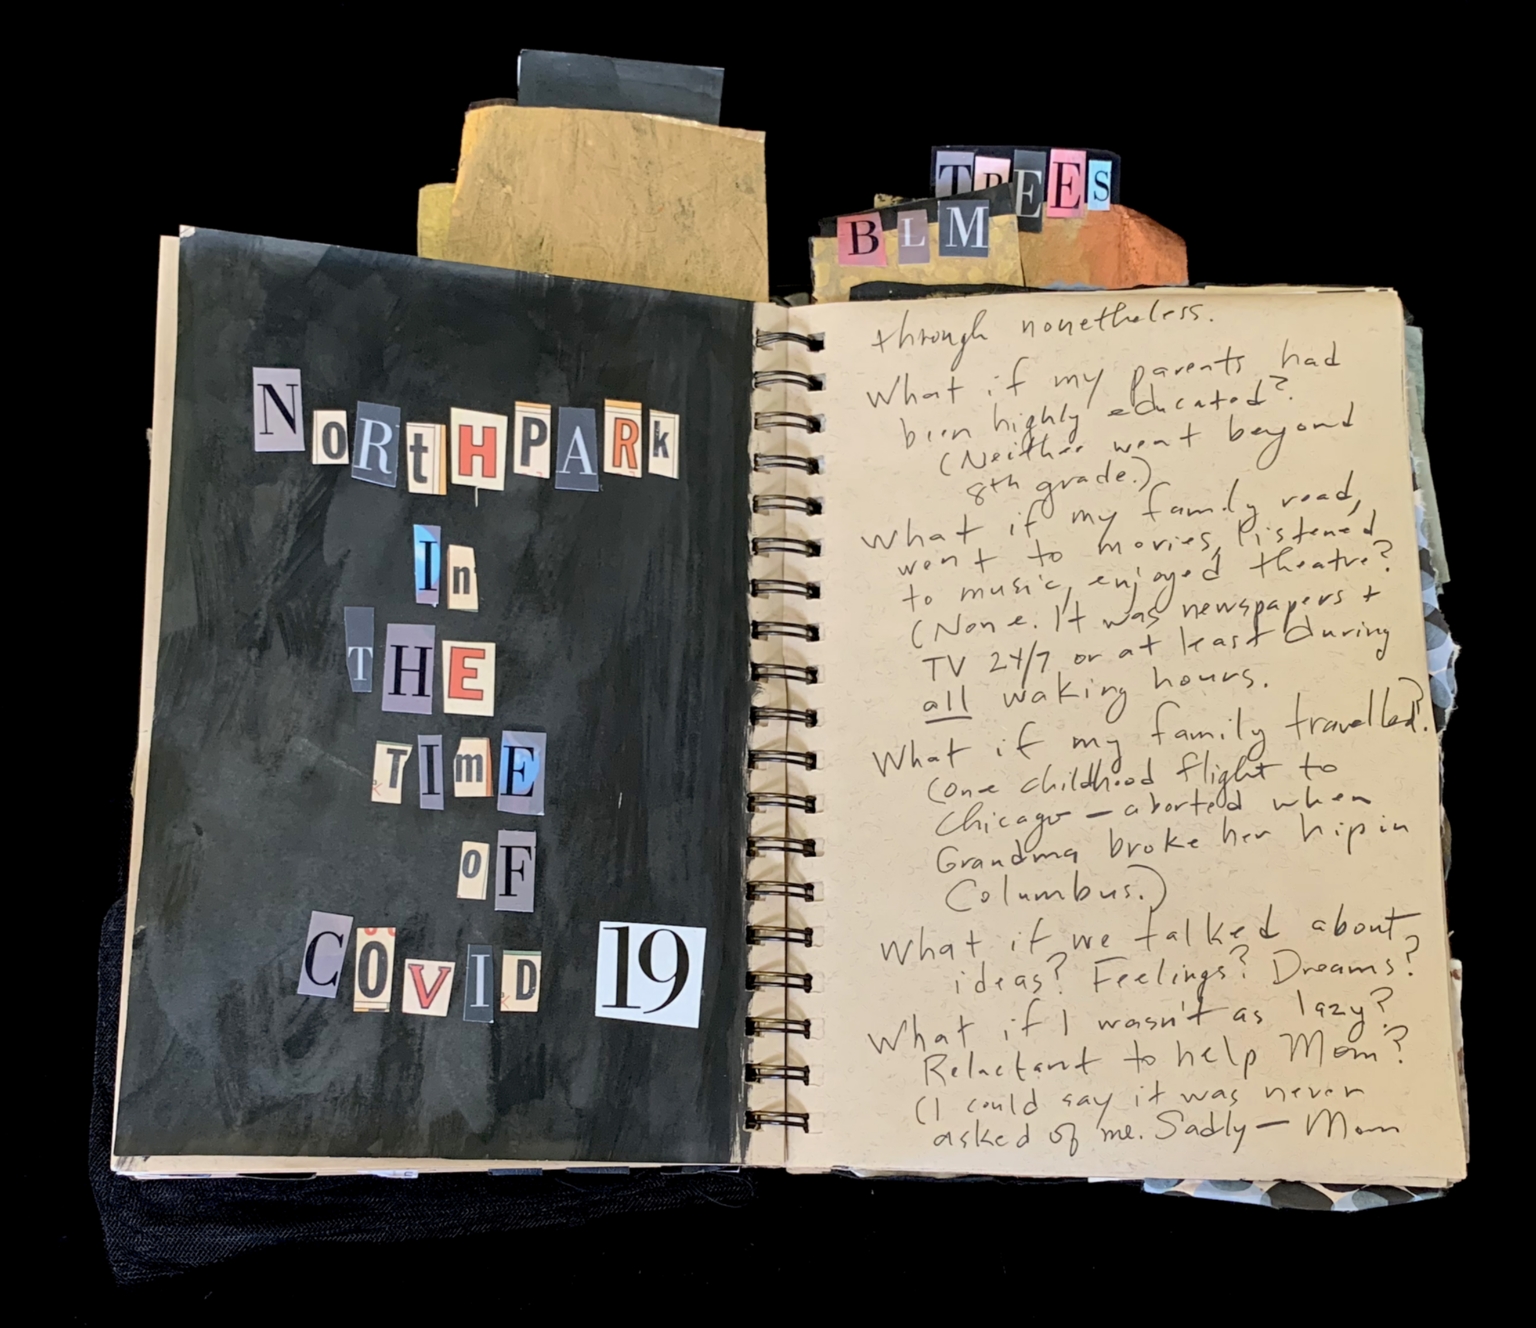 TREES
BLM
NoRtHPARk
In
THE
TImE
oF
COVID 19
through nonetheless.
What if my parents had
been highly educated?
(Neither went beyond
8th grade.)
What if my family read,
went to movies, listened
to music, enjoyed theatre?
(None. It was newspapers +
TV 24/7 or at least during
all waking hours.
What if my family travelled?
(one childhood flight to
Chicago – aborted when
Grandma broke her hip in
Columbus.)
What if we talked about
ideas? Feelings? Dreams?
What if I wasn't as lazy?
Reluctant to help Mom?
(I could say it was never
asked of me. Sadly – Mom